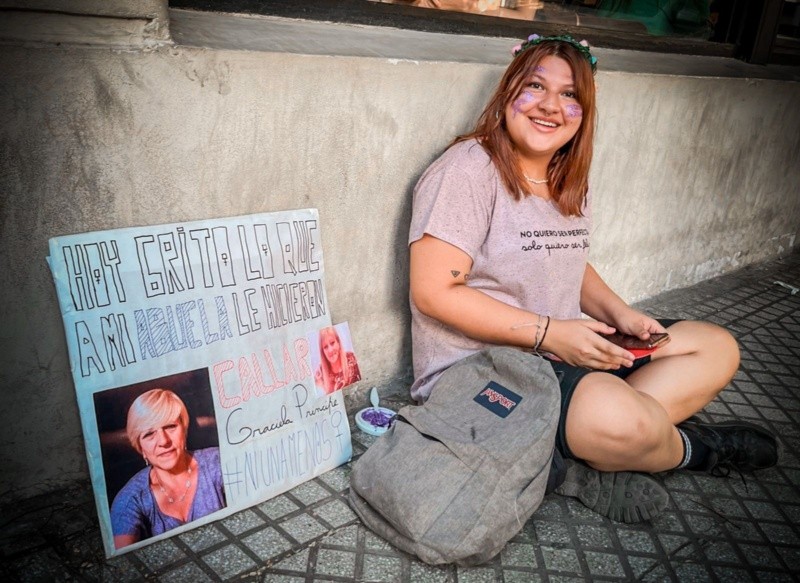 HOY GRITO LO QUE
A MI ABUELA LE HICIERON
CALLAR
Graciela Principe
#NIUNAMENOS
NO QUIERO SER PERFECTA
solo quiero ser
JANSPORT